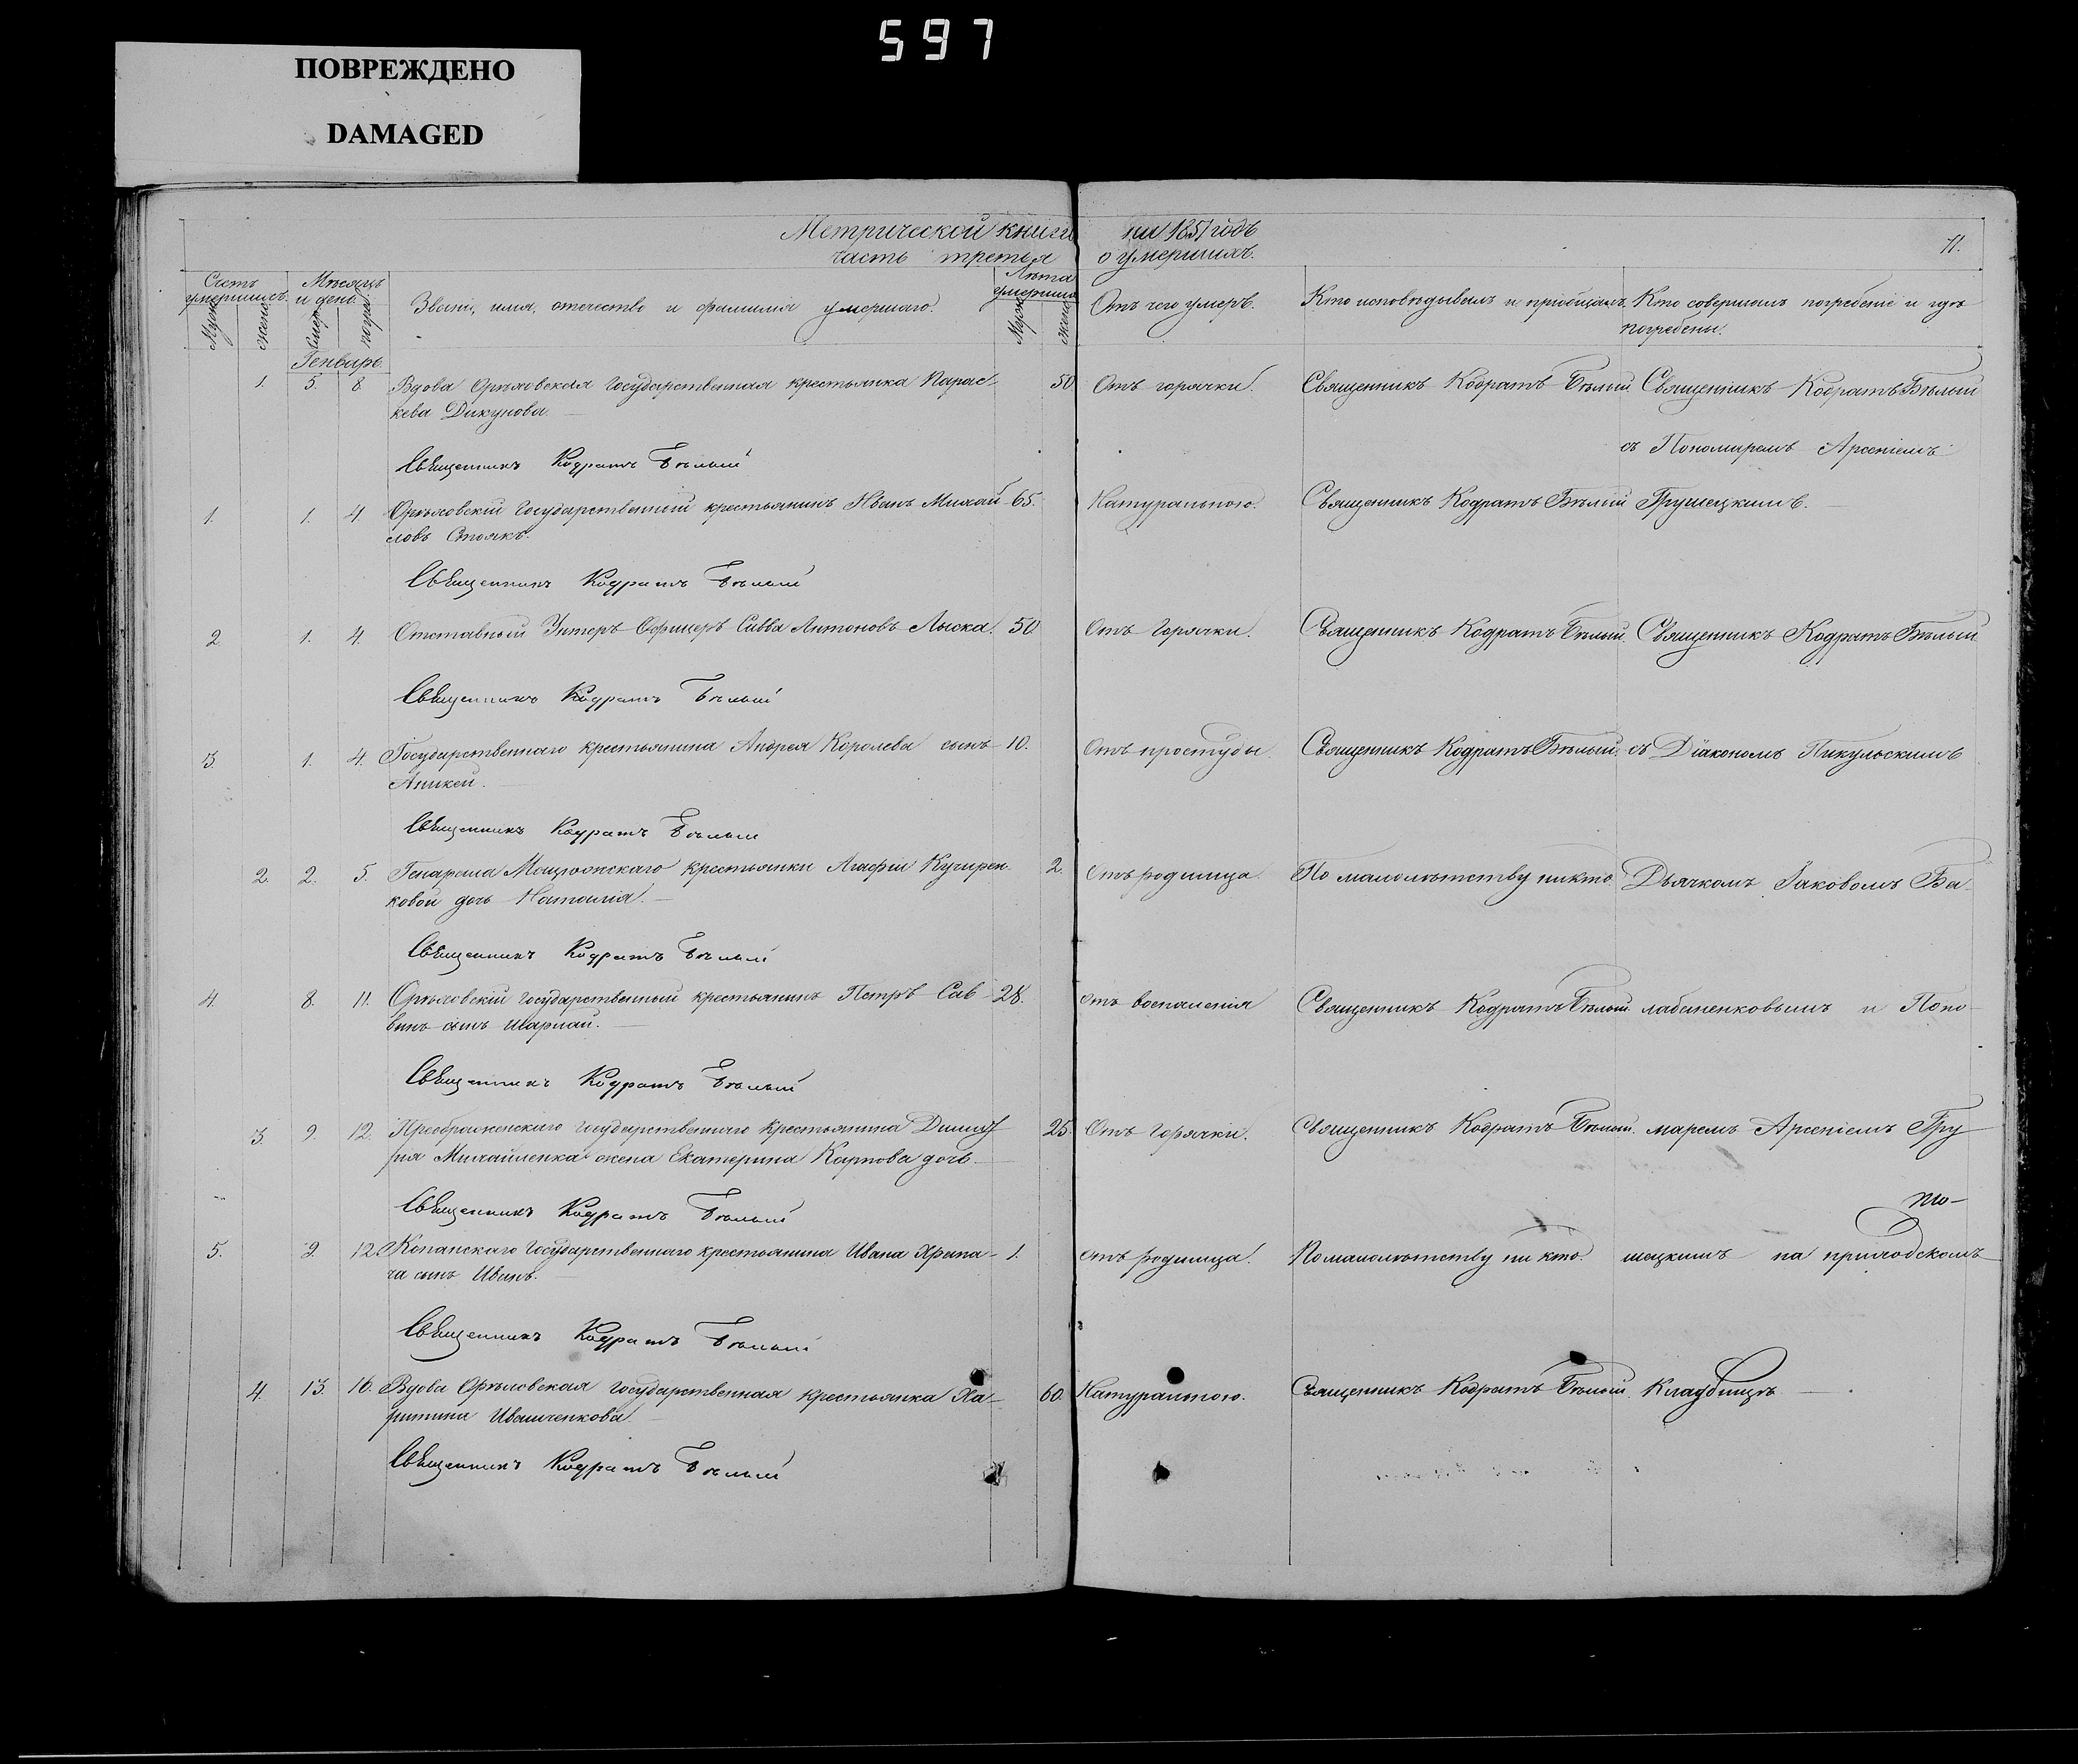 597
ПОВРЕЖДЕНО
DAMAGED
Метрической книги на 1851 годъ
часть третья о умершихъ.
11.
Счетъ умершихъ.
Муж. Жен.
Мѣсяцъ и день.
Звание, имя, отечество и фамилія умершаго.
Лѣта умершаго
Муж. Жен.
Отъ чего умеръ.
Кто исповѣдывалъ и пріобщалъ.
Кто совершалъ погребеніе и гдѣ
погребены.
Генварь.
1. 5. 8. Вдова Орѣховская Государственная крестьянка Парас- 50 Отъ горячки. Священникъ Кодратъ Бѣлый. Священникъ Кодратъ Бѣлый
кева Дикунова.
съ Пономаремъ Арсеніемъ
Священникъ Кодратъ Бѣлый
1. 1. 4 Орѣховскій Государственный крестьянинъ Иванъ Михай- 65. Натуральною. Священникъ Кодратъ Бѣлый Грушецкимъ.
ловъ Стоякъ.
Священникъ Кодратъ Бѣлый
2 1. 4. Отставный Унтеръ-Офицеръ Савва Антоновъ Лыска. 50 Отъ Горячки. Священникъ Кодратъ Бѣлый. Священникъ Кодратъ Бѣлый
Священникъ Кодратъ Бѣлый
3. 1. 4. Государственнаго крестьянина Андрея Королева сынъ 10. Отъ простуды. Священникъ Кодратъ Бѣлый. съ Діакономъ Пикульскимъ
Аникей.
Священникъ Кодратъ Бѣлый
2. 2. 5. Генарала крестьянки Агафіи Кучерен- 2. Отъ родимца По малолѣтству никто. Дьячкомъ Іаковомъ Ба-
ковой дочь Наталія.
Священникъ Кодратъ Бѣлый
4. 8. 11. Орѣховскій государственный крестьянинъ Петръ Сав- 28. Отъ воспаленія Священникъ Кодратъ Бѣлый. лабаненковымъ и Поно-
винъ сынъ Шарпай.
Священникъ Кодратъ Бѣлый
3. 9. 12. Преображенскаго государственнаго крестьянина Димит- 25. Отъ Горячки. Священникъ Кодратъ Бѣлый. маремъ Арсеніемъ Гру
рія Михайленка жена Екатерина Карпова дочь.
Священникъ Кодратъ Бѣлый
5. 9. 12. Копанскаго Государственнаго крестьянина Ивана Храпа- 1. Отъ родимца. По малолѣтству ни кто. шецкимъ на приходскомъ
ча сынъ Иванъ.
Священникъ Кодратъ Бѣлый
4. 13. 16. Вдова Орѣховская государственная крестьянка Ха- 60. Натуральною. Священникъ Кодратъ Бѣлый. Кладбищѣ.
ритина Иващенкова.
Священникъ Кодратъ Бѣлый